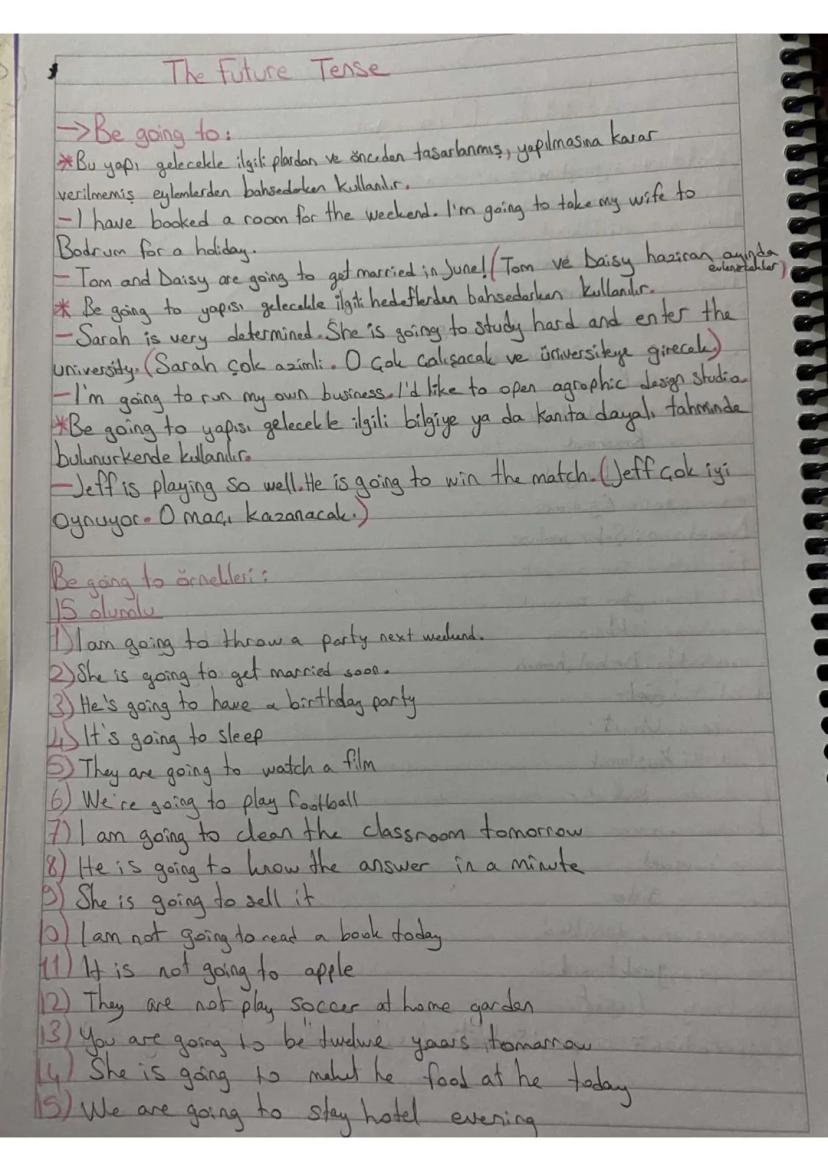 The Future Tense
→ Be going to:
* Bu yapı gelecekle ilgili plardan ve önceden tasarlanmış, yapılmasına karar
verilmemiş eylemlerden bahsederken kullanılır.
- I have booked a room for the weekend. I'm going to take my wife to
Bodrum for a holiday.
- Tom and Daisy are going to get married in June! (Tom ve Daisy haziran ayında
evlenecekler)
* Be going to yapısı gelecekle ilgili hedeflerden bahsederken kullanılır.
- Sarah is very determined. She is going to study hard and enter the
university. (Sarah çok azimli. O çok çalışacak ve üniversiteye girecek)
- I'm going to run my own business. I'd like to open agrophic design studio.
* Be going to yapısı gelecekle ilgili bilgiye ya da kanıta dayalı tahminde
bulunurkende kullanılır.
- Jeff is playing so well. He is going to win the match. (Jeff çok iyi
oynuyor. O maçı kazanacak.)
Be going to örnekleri:
15 olumlu
1) I am going to throw a party next weekend.
2) She is going to get married soon.
3) He's going to have a birthday party
4) It's going to sleep
5) They are going to watch a film
6) We're going to play football
7) I am going to clean the classroom tomorrow
8) He is going to know the answer in a minute
9) She is going to sell it
10) I am not going to read a book today
11) It is not going to apple
12) They are not play soccer at home garden
13) You are going to be twelwe yaars tomarrow
14) She is going to he food at he today
15) We are going to stay hotel evening